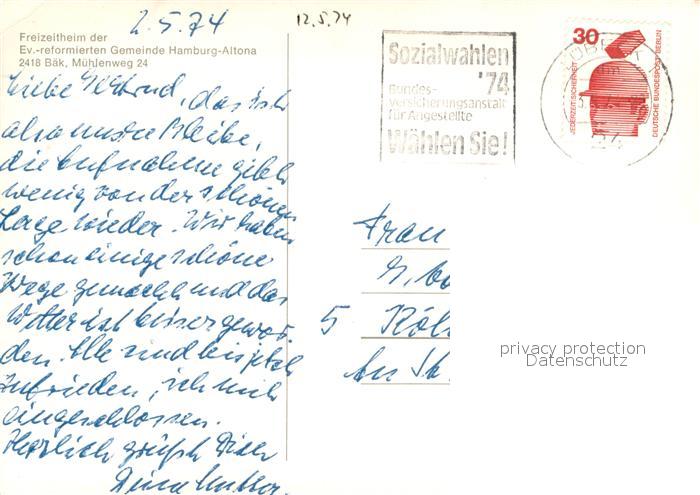 2.5.74
12.5.74
Freizeitheim der
Ev.-reformierten Gemeinde Hamburg-Altona
2418 Bäk, Mühlenweg 24
Liebe Gertrud, das ist
also unsre Bleibe,
die Aufnahme gibt
wenig von der schönen
Lage wieder. Wir haben
schon einige schöne
Wege gemacht und das
Wetter ist besser gewor-
den. Alle sind bis jetzt
zufrieden, ich mich
eingeschlossen.
Herzlich grüßt Dich
Deine Mutter.
Sozialwahlen
'74
Bundes-
versicherungsanstalt
für Angestellte
Wählen Sie!
30
JEDERZEIT SICHERHEIT
DEUTSCHE BUNDESPOST BERLIN
24
Frau
G.
5 Köl
An
privacy protection
Datenschutz